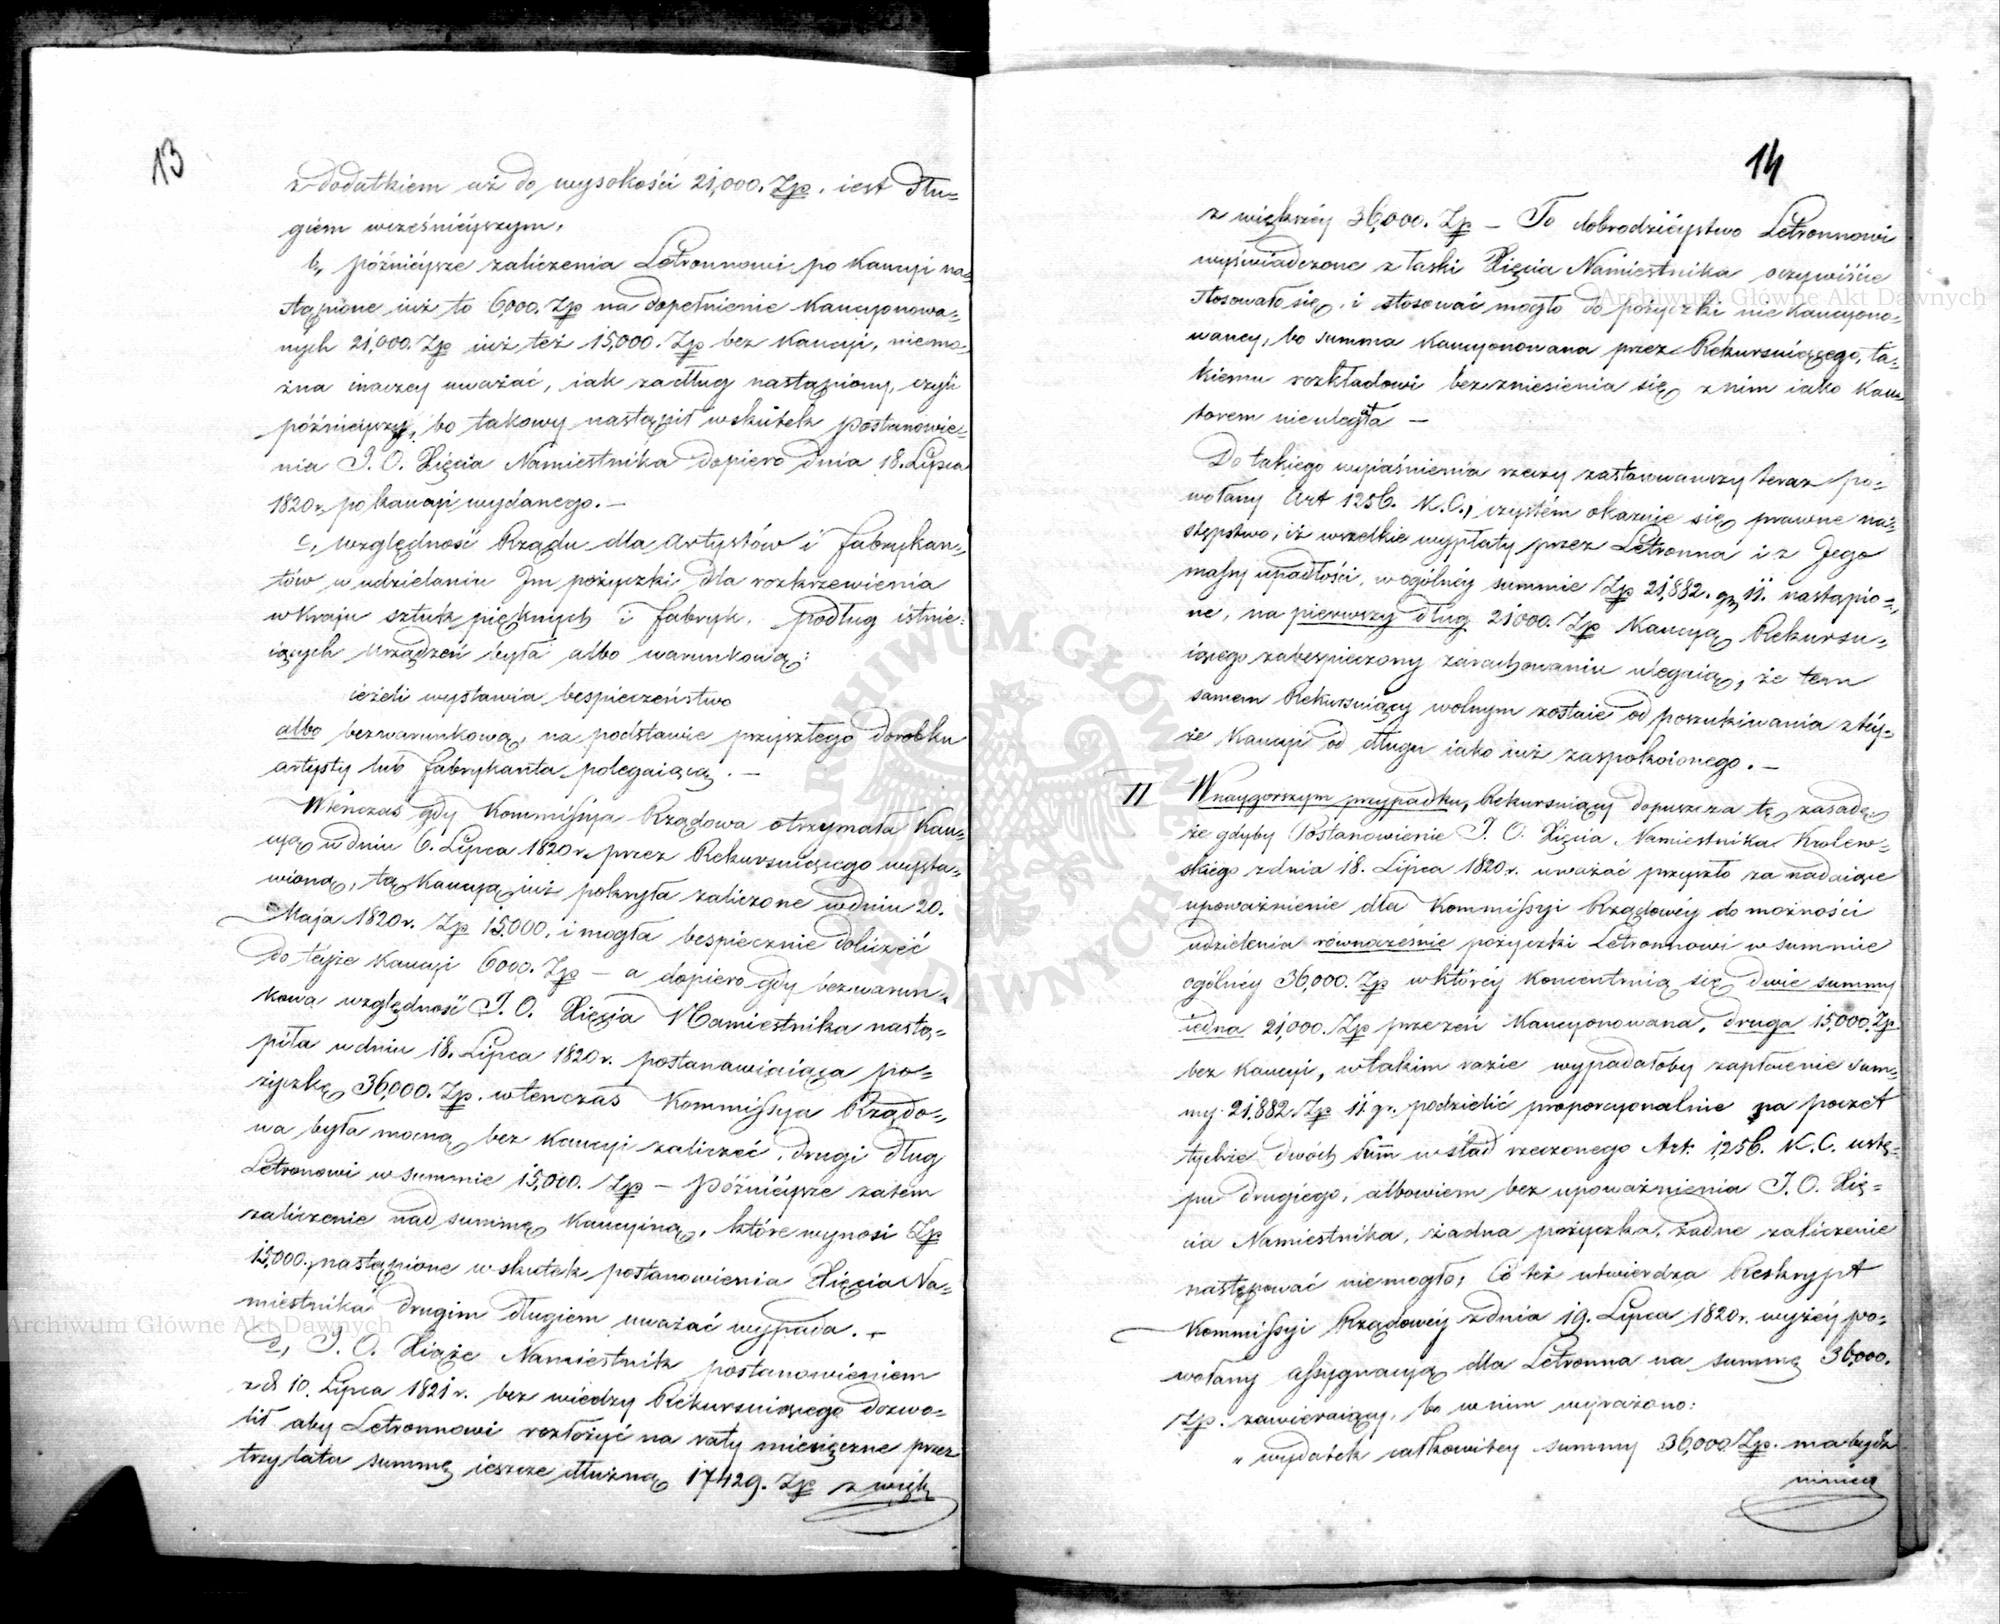 13
z dodatkiem aż do wysokości 21,000. Zp. iest dłu=
giem wcześnieyszym,
b, późnieysze zaliczenia Letronnowi po Kaucyi na=
stąpione iuż to 6,000. Zp na dopełnienie Kaucyonowa=
nych 21,000. Zp iuż też 15,000. Zp bez Kaucyi, niemo=
żna inaczey uważać, iak za dług nastąpiony, czyli
późnieyszy, bo takowy nastąpił wskutek postanowie=
nia J. O. Xięcia Namiestnika dopiero dnia 18. Lipca
1820 r. po kaucyi wydanego. –
c, względność Rządu dla Artystów i fabrykan=
tów w udzielaniu Im pożyczki dla rozkrzewienia
w Kraju sztuk pięknych i fabryk, podług istnie=
iących urządzeń była albo warunkową:
ieżeli wystawia bespieczeństwo
albo bezwarunkową, na podstawie przyszłego dorobku
artysty lub fabrykanta polegaiącą. –
Wtenczas gdy Kommissya Rządowa otrzymała Kau=
cyą w dniu 6. Lipca 1820 r. przez Rekursuiącego wysta=
wioną, tą Kaucyą iuż pokryła zaliczone w dniu 20.
Maja 1820 r. Zp 15,000. i mogła bespiecznie doliczyć
do teyże Kaucyi 6000. Zp – a dopiero gdy bezwarun=
kowa względność J. O. Xięcia Namiestnika nastą=
piła w dniu 18. Lipca 1820 r. postanawiaiąca po=
życzkę 36,000. Zp. wtenczas Kommissya Rządo=
wa była mocną bez Kaucyi zaliczyć, drugi dług
Letronowi w summie 15,000. Zp – późnieysze zatem
zaliczenie nad summę Kaucyiną, które wynosi Zp
15,000. nastąpione w skutek postanowienia Xięcia Na=
miestnika drugim długiem uważać wypada. –
d, J. O. Xiąże Namiestnik postanowieniem
z d 10. Lipca 1821 r. bez wiedzy Rekursuiącego dozwo=
lił aby Letronnowi rozłożyć na raty miesięczne przez
trzy lata summę ieszcze dłużną 17429. Zp z więk
14
z większéy 36,000. Zp – To dobrodzieystwo Letronnowi
wyświadczone z łaski Xięcia Namiestnika oczywiście
stosowało się, i stosować mogło do pożyczki nie Kaucyono=
waney, bo summa Kaucyonowana przez Rekursuiącego, ta=
kiemu rozkładowi bez zniesienia się z nim iako Kau=
torem nie uległa –
Do takiego wyiaśnienia rzeczy zastosowawszy teraz po=
wołany Art 1256. K. C., czystém okazuie się prawne na=
stępstwo, iż wszelkie wypłaty przez Letronna i z Jego
massy upadłości, w ogólnéy summie Zp 21,882. gr 11. nastąpio=
ne, na pierwszy dług 21000. Zp Kaucyą Rekursu=
iącego zabespieczony zarachowaniu ulegaią, że tem
samem Rekursuiący wolnym zostaie od poszukiwania z téy=
że Kaucyi od długu iako iuż zaspokoionego. –
II W naygorszym przypadku, Rekursuiący dopuszcza tę zasadę:
że gdyby Postanowienie J. O. Xięcia Namiestnika Królew=
skiego z dnia 18. Lipca 1820 r. uważać przyszło za nadaiące
upoważnienie dla Kommissyi Rządowéy do możności
udzielenia równocześnie pożyczki Letronnowi w summie
ogólnéy 36,000. Zp w któréy koncentruią się dwie summy
iedna 21,000. Zp przezeń Kaucyonowana, druga 15,000. Zp
bez Kaucyi, w takim razie wypadałoby zapłacenie sum=
my 21,882. Zp 11 gr. podzielić proporcyonalnie na poczet
tychże dwóch sum w ślad rzeczonego Art. 1256. K. C. ustę=
pu drugiego, albowiem bez upoważnienia J. O. Xię=
cia Namiestnika, żadna pożyczka, żadne zaliczenie
następować niemogło, Co też utwierdza Reskrypt
Kommissyi Rządowéy z dnia 19. Lipca 1820 r. wyżéy po=
wołany assygnacyą dla Letronna na summę 36,000.
Zp. zawieraiący, bo w nim wyrażono:
„ wydatek całkowitey summy 36,000 Zp. ma bydź
Archiwum Główne Akt Dawnych
Archiwum Główne Akt Dawnych
ARCHIWUM GŁÓWNE AKT DAWNYCH